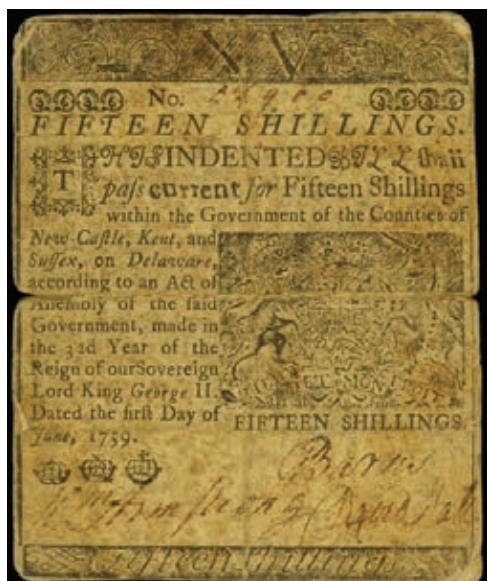 XV
No. 
FIFTEEN SHILLINGS.
THIS INDENTED BILL shall
paſs current for Fifteen Shillings
within the Government of the Counties of
New-Caſtle, Kent, and
Suſſex, on Delaware,
according to an Act of
Aſſembly of the ſaid
Government, made in
the 32d Year of the
Reign of our Sovereign
Lord King George II.
Dated the firſt Day of
June, 1759.
FIFTEEN SHILLINGS.
Fifteen Shillings.